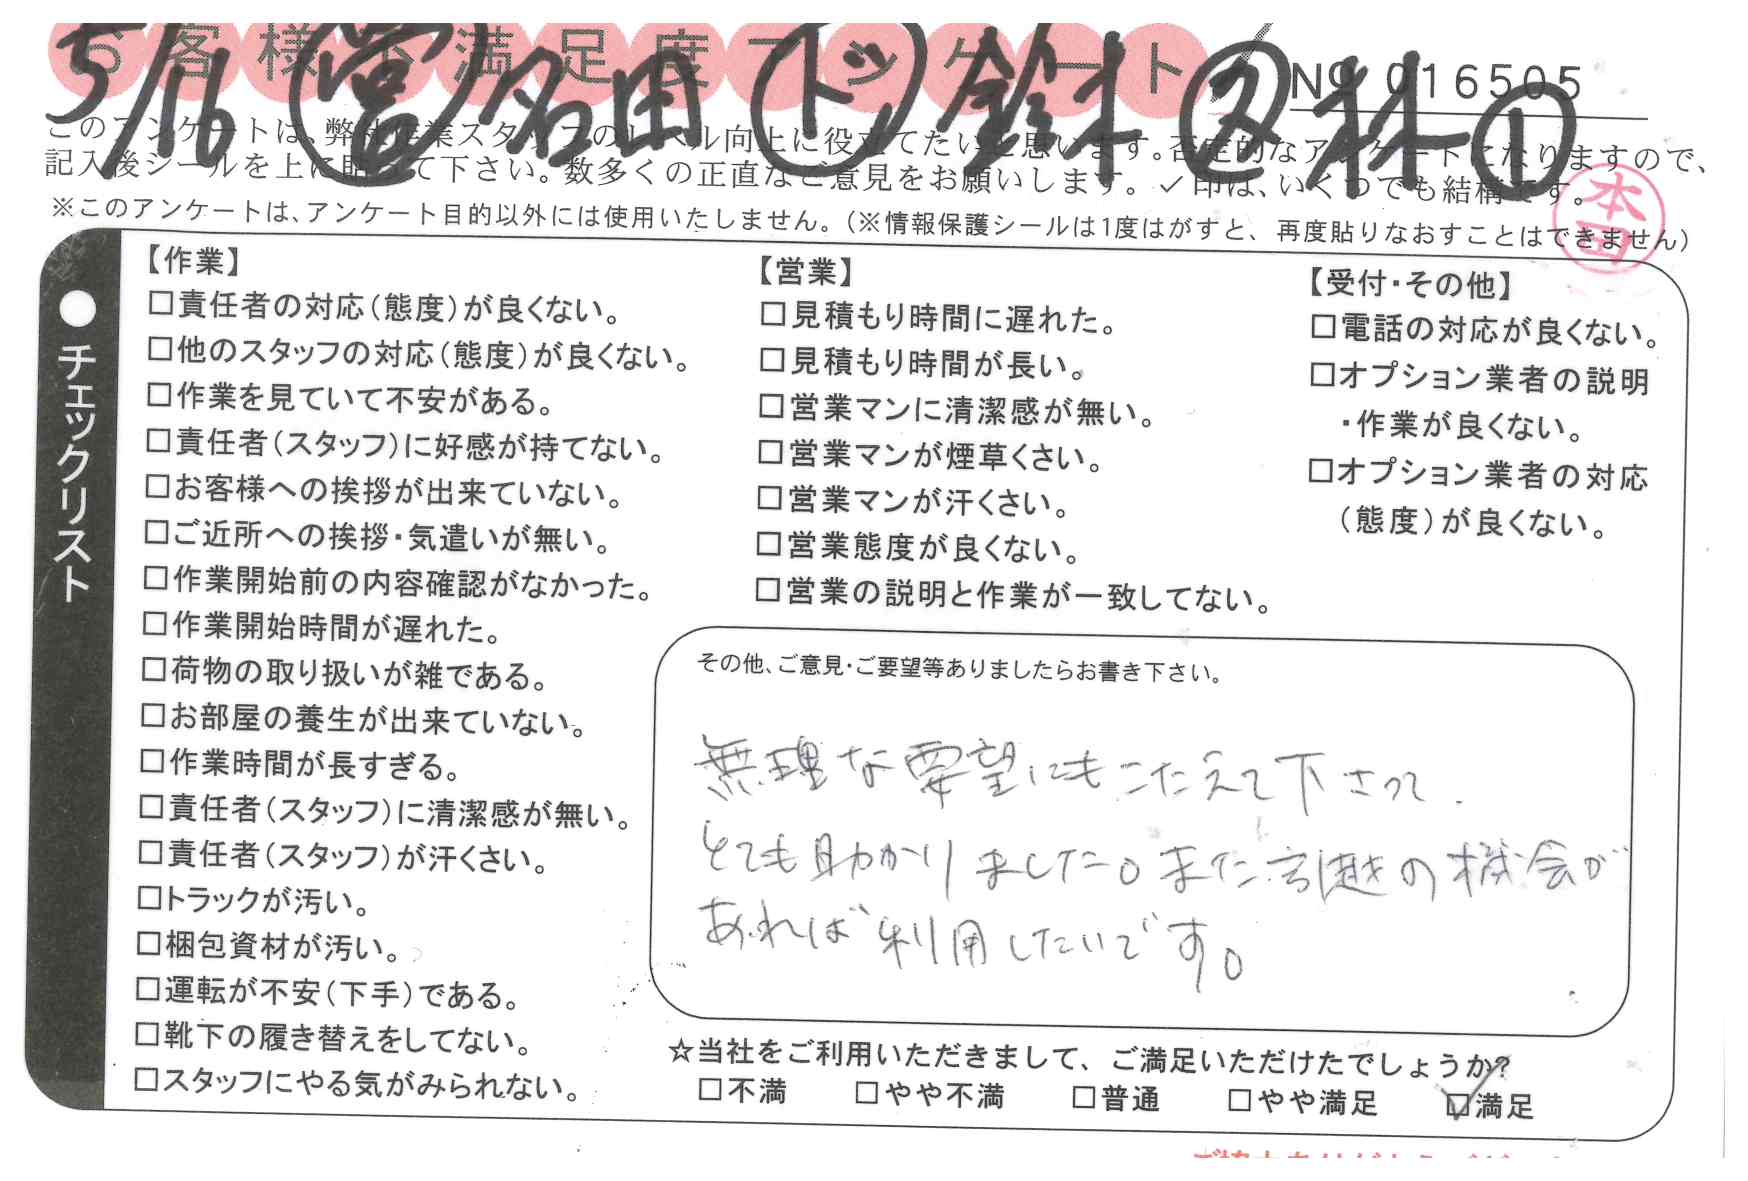 お客様不満足度アンケート
5/16 営 名田 ト 鈴木 2 林 1
No 016505
このアンケートは、弊社作業スタッフのレベル向上に役立てたいと思います。否定的なアンケートになりますので、
記入後シールを上に貼って下さい。数多くの正直なご意見をお願いします。✓印は、いくつでも結構です。
本田
※このアンケートは、アンケート目的以外には使用いたしません。(※情報保護シールは1度はがすと、再度貼りなおすことはできません)
●チェックリスト
【作業】
□責任者の対応(態度)が良くない。
□他のスタッフの対応(態度)が良くない。
□作業を見ていて不安がある。
□責任者(スタッフ)に好感が持てない。
□お客様への挨拶が出来ていない。
□ご近所への挨拶・気遣いが無い。
□作業開始前の内容確認がなかった。
□作業開始時間が遅れた。
□荷物の取り扱いが雑である。
□お部屋の養生が出来ていない。
□作業時間が長すぎる。
□責任者(スタッフ)に清潔感が無い。
□責任者(スタッフ)が汗くさい。
□トラックが汚い。
□梱包資材が汚い。
□運転が不安(下手)である。
□靴下の履き替えをしてない。
□スタッフにやる気がみられない。
【営業】
□見積もり時間に遅れた。
□見積もり時間が長い。
□営業マンに清潔感が無い。
□営業マンが煙草くさい。
□営業マンが汗くさい。
□営業態度が良くない。
□営業の説明と作業が一致してない。
【受付・その他】
□電話の対応が良くない。
□オプション業者の説明
・作業が良くない。
□オプション業者の対応
(態度)が良くない。
その他、ご意見・ご要望等ありましたらお書き下さい。
無理な要望にもこたえて下さって、
とても助かりました。また引越の機会が
あれば利用したいです。
☆当社をご利用いただきまして、ご満足いただけたでしょうか?
□不満 □やや不満 □普通 □やや満足 ☑満足